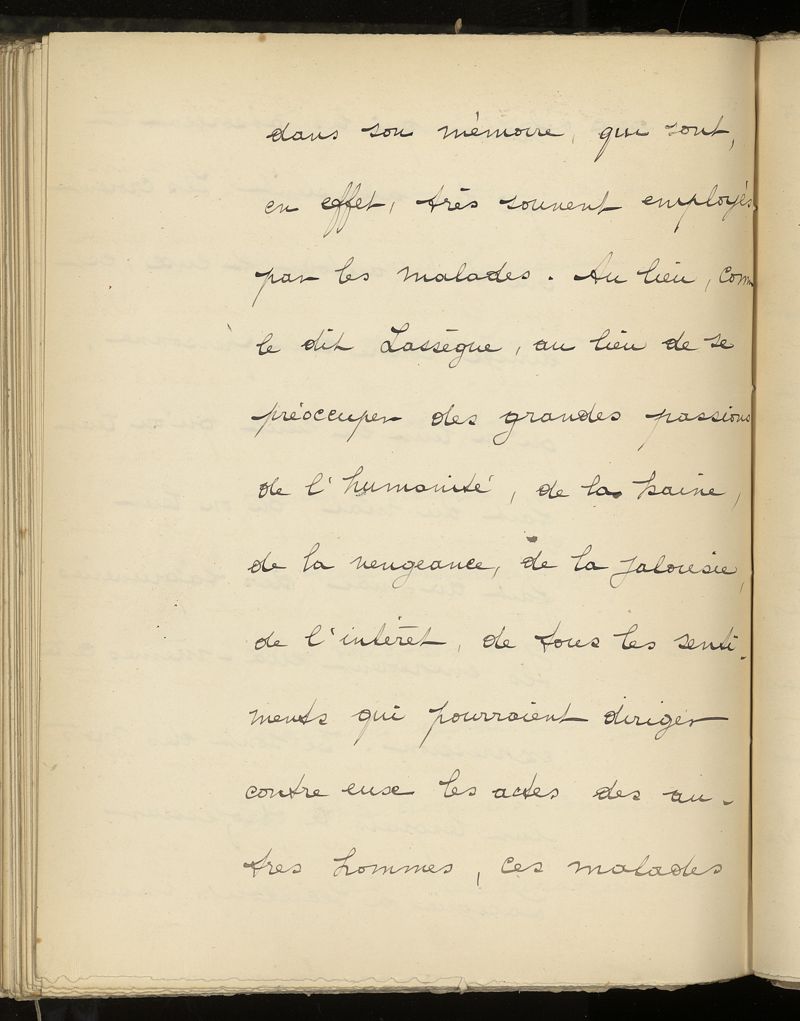 dans son mémoire, qui sont,
en effet, très souvent employés
par les malades. Au lieu, comm
le dit Lassègue, au lieu de se
préoccuper des grandes passions
de l'humanité, de la haine,
de la vengeance, de la jalousie,
de l'intérêt, de tous les senti-
ments qui pourraient diriger
contre eux les actes des au-
tres hommes, ces malades